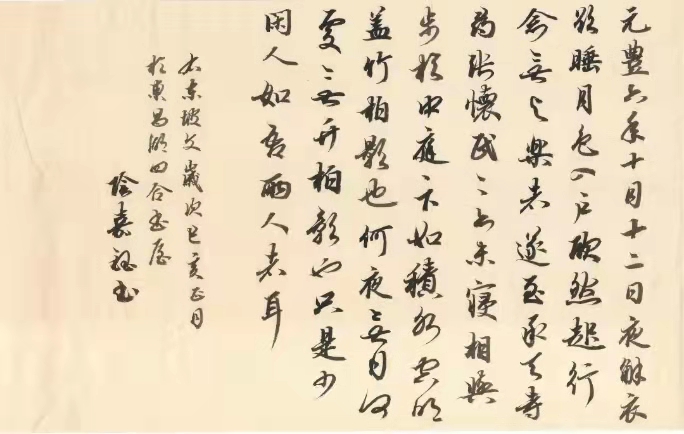 元豐六年十月十二日夜解衣
欲睡月色入戶欣然起行
念無與樂者遂至承天寺
尋張懷民〻亦未寢相與
步於中庭下如積水空明
蓋竹柏影也何夜無月何
處〻無竹柏影也只是少
閑人如吾兩人者耳
右東坡文歲次己亥正月
於東昌湖四合書屋
嘉書